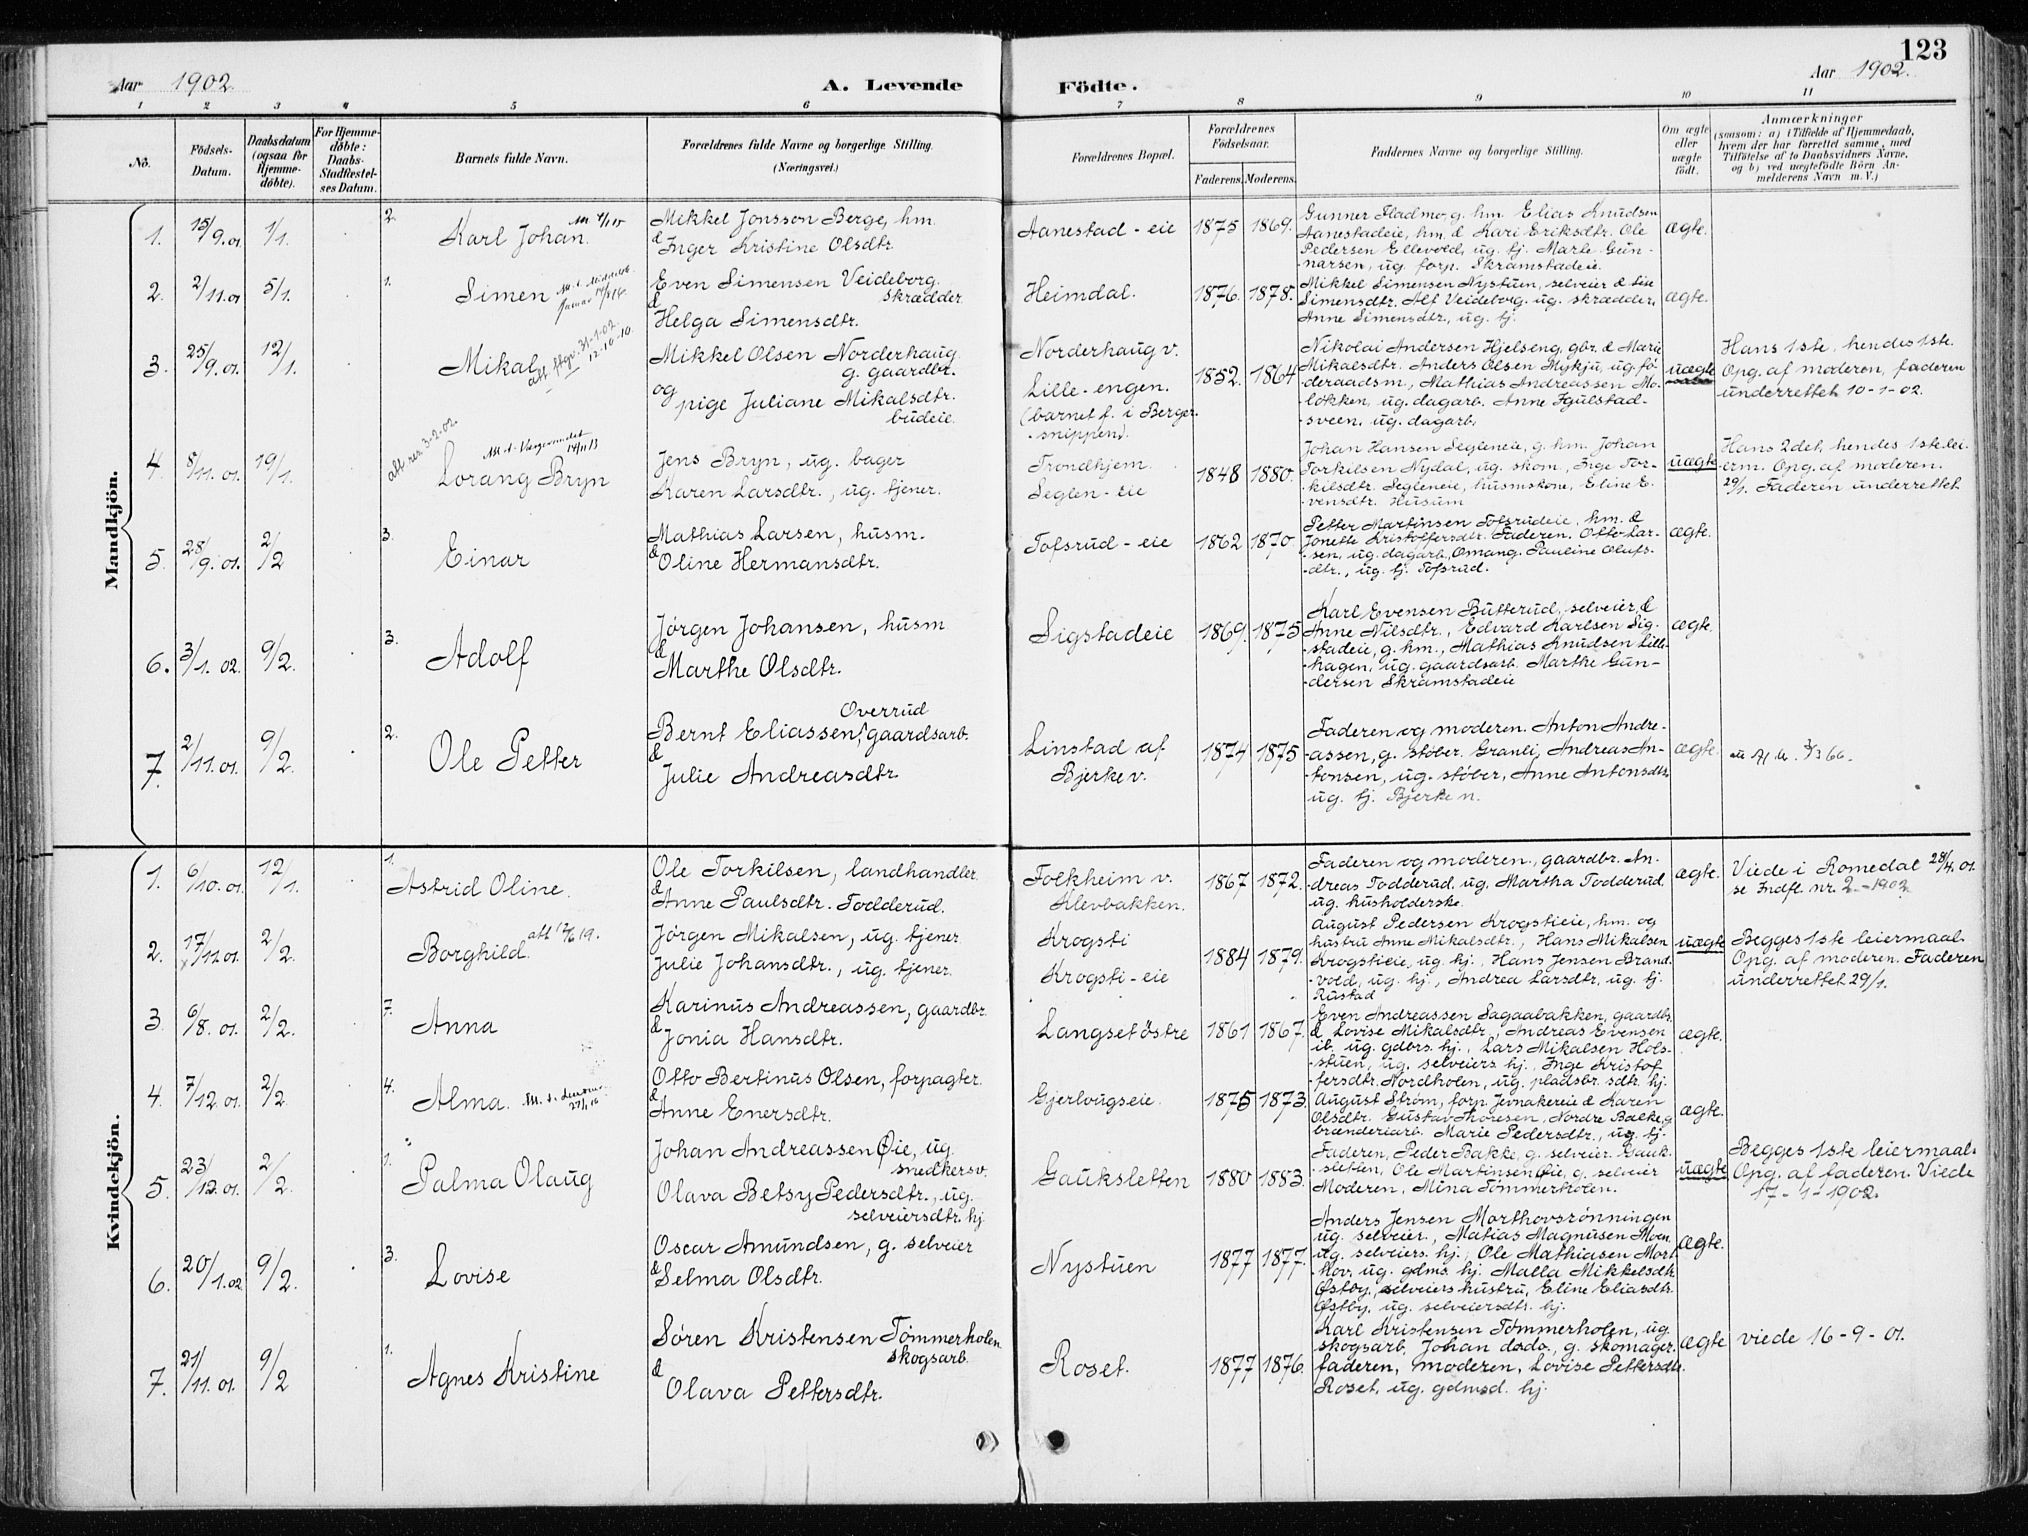 123
Aar 1902. A. Levende Födte. Aar 1902.
1 2 3 4 5 6 7 8 9 10 11
No.
Födsels-Datum.
Daabsdatum (ogsaa for Hjemme-döbte).
For Hjemme-döbte: Daabs-Stadfæstel-ses Datum.
Barnets fulde Navn.
Forældrenes fulde Navne og borgerlige Stilling.
(Næringsvei.)
Forældrenes Bopæl.
Forældrenes Födselsaar.
Faderens. Moderens.
Faddernes Navne og borgerlige Stilling.
Om ægte eller uægte födt.
Anmærkninger
(saasom: a) i Tilfælde af Hjemmedaab,
hvem der har forrettet samme, med
Tilföielse af to Daabsvidners Navne,
og b) ved uægtefödte Börn An-
melderens Navn m. V.)
Mandkjön.
1. 15/9.01 1/1. 2. Karl Johan.
Mikkel Jonsson Berge, hm.
& Inger Kristine Olsdtr.
Aanestad-eie 1875 1869.
Gunner Fladmo, g. hm. Elias Knudsen
Aanestadeie, hm. & Kari Eriksdtr. Ole
Pedersen Ellevold, ug. tj. Marte Gun-
-narsen, ug. forp. Skramstadeie.
ægte.
2. 2/11.01 5/1. 1. Simen
Even Simensen Veideborg.
skrædder
& Helga Simensdtr.
Heimdal. 1876. 1878.
Mikkel Simensen Nystuen, selveier & Lise
Simensdtr. Alf Veideborg. ug. skrædder,
Anne Simensdtr., ug. tj.
ægte.
3. 25/9.01. 12/1. Mikal
att. ftgv. 31-1-02.
12-10-10.
Mikkel Olsen Norderhaug
g. gaardbr.
og pige Juliane Mikalsdtr.
budeie.
Norderhaug v.
Lille-engen.
(barnet f. i Berger-
-snippen).
1852. 1864
Nikolai Andersen Hjelseng, gbr. & Marie
Mikalsdtr. Anders Olsen Mykju, ug. fö-
deraadsm., Mathias Andreassen Mo-
løkken, ug. dagarb. Anne Hjulstad-
-sveen, ug. dagarb.
uægte
Hans 1ste, hendes 1ste.
Opg. af moderen, faderen
underrettet 10-1-02.
4. 8/11.01. 19/1. Lorang Bryn
att res 3-2-02.
Jens Bryn, ug. bager
Karen Larsdtr., ug. tjener.
Trondhjem.
Seglen-eie
1848 1880.
Johan Hansen Segleneie, g. hm. Johan
Torkilsen Nydal, ug. skom., Inge Tor-
kilsdtr. Segleneie, husmskone, Eline E-
vensdtr. Husum
uægte
Hans 2det, hendes 1ste lei-
erm. Opg. af moderen.
29/1. Faderen underrettet
5. 28/9.01. 2/2 3. Einar
Mathias Larsen, husm.
& Oline Hermansdtr.
Tofsrud-eie 1862 1870
Petter Martinsen Tofsrudeie, hm. &
Jonette Kristoffersdtr. Faderen. Otto Lar-
-sen, ug. dagarb., Omang. Pauline Olufs-
-dtr., ug. tj. Tofsrud.
ægte.
6. 3/1.02. 9/2. 3. Adolf
Jörgen Johansen, husm
& Marthe Olsdtr.
Sigstadeie 1869. 1875
Karl Evensen Butterud, selveier, &
Anne Nilsdtr., Edvard Karlsen Sig-
-stadeie, g. hm., Mathias Knudsen Lille-
-hagen, ug. gaardsarb. Marthe Gun-
-dersen Skramstadeie
ægte.
7. 2/11.01. 9/2. 2. Ole Petter
Overrud
Bernt Eliassen, gaardsarb.
& Julie Andreasdtr
Linstad af
Bjerke v.
1874 1875
Faderen og moderen. Anton Andre-
-assen, g. støber. Granli, Andreas An-
-tonsen, ug. støber, Anne Antonsdtr.
ug. tj. Bjerke n.
ægte.
Kvindekjön.
1. 6/10.01. 12/1. 1. Astrid Oline.
Ole Torkilsen, landhandler.
& Anne Paulsdtr. Todderud.
Folkheim v.
Klevbakken.
1867 1872.
Faderen og moderen., gaardbr. An-
-dreas Todderud, ug. Martha Todderud.
ug. husholderske.
ægte.
Viede i Romedal 28/4.01.
se Indfl. nr. 2-1902.
2. 17/11.01 2/2. Borghild.
Jörgen Mikalsen, ug. tjener
Julie Johansdtr., ug. tjener.
Krogsti
Krogsti-eie
1884 1879.
August Pedersen Krogstieie, hm. og
hustru Anne Mikalsdtr., Hans Mikalsen
Krogstieie, ug. hj., Hans Jensen Brand-
-vold, ug. hj., Andrea Larsdtr, ug. hj.
Rustad
uægte
Begges 1ste leiermaal.
Opg. af moderen. Faderen
underrettet 29/1.
3. 6/8.01. 2/2. 7. Anna
Karinus Andreassen, gaardbr.
& Jonia Hansdtr.
Langset östre 1861 1867.
Even Andreassen Sagaabakken, gaardbr.
& Lovise Mikalsdtr., Andreas Evensen
ib. ug. gdbrs. hj., Lars Mikalsen Hols-
-stuen, ug. selveiers hj., Inge Kristof-
-fersdtr. Nordholen, ug. pladsbr. sdtr. hj.
ægte.
4. 7/12.01. 2/2. 4. Alma.
Otto Bertinus Olsen, forpagter.
& Anne Enersdtr.
Gjerlougseie. 1875 1873.
August Strøm, forp. Jevnakereie & Karen
Olsdtr. Gustav Thoresen, Nordre Bakke, g.
brænderiarb. Marie Pedersdtr., ug. tj.
ægte.
5. 23/12.01. 2/2. 1. Palma Olaug
Johan Andreassen Øie, ug.
snedkersv.
Olava Betsy Pedersdtr., ug.
selveiersdtr. hj.
Gauksletten 1880 1883.
Faderen, Peder Bakke, g. selveier Gauk-
-sletten, Ole Martinsen Øie, g. selveier
Moderen, Mina Tømmerholen.
uægte
Begges 1ste leiermaal.
Opg. af faderen. Viede
17-1-1902.
6. 20/1.02 9/2. 3. Lovise
Oscar Amundsen, g. selveier
& Selma Olsdtr.
Nystuen 1877 1877.
Anders Jensen Morthovsrönningen
ug. selveier., Matias Magnusen Moen
ug. selveiers. hj., Ole Mathiasen Mort-
-hov, ug. gdms. hj. Malla Mikkelsdtr.
Østby, selveiers hustru, Eline Eliasdtr.
Østby, ug. selveiersdtr. hj.
ægte.
7. 21/11.01. 9/2 1. Agnes Kristine
Sören Kristensen Tömmerholen
skogsarb.
& Olava Pettersdtr.
Roset. 1877 1876.
Karl Kristensen Tømmerholen, ug.
skogsarb, Johan dodo., g. skomager.
faderen, moderen, Lovise Pettersdtr.
Roset, ug. gdmsd. hj.
ægte
viede 16-9-01.